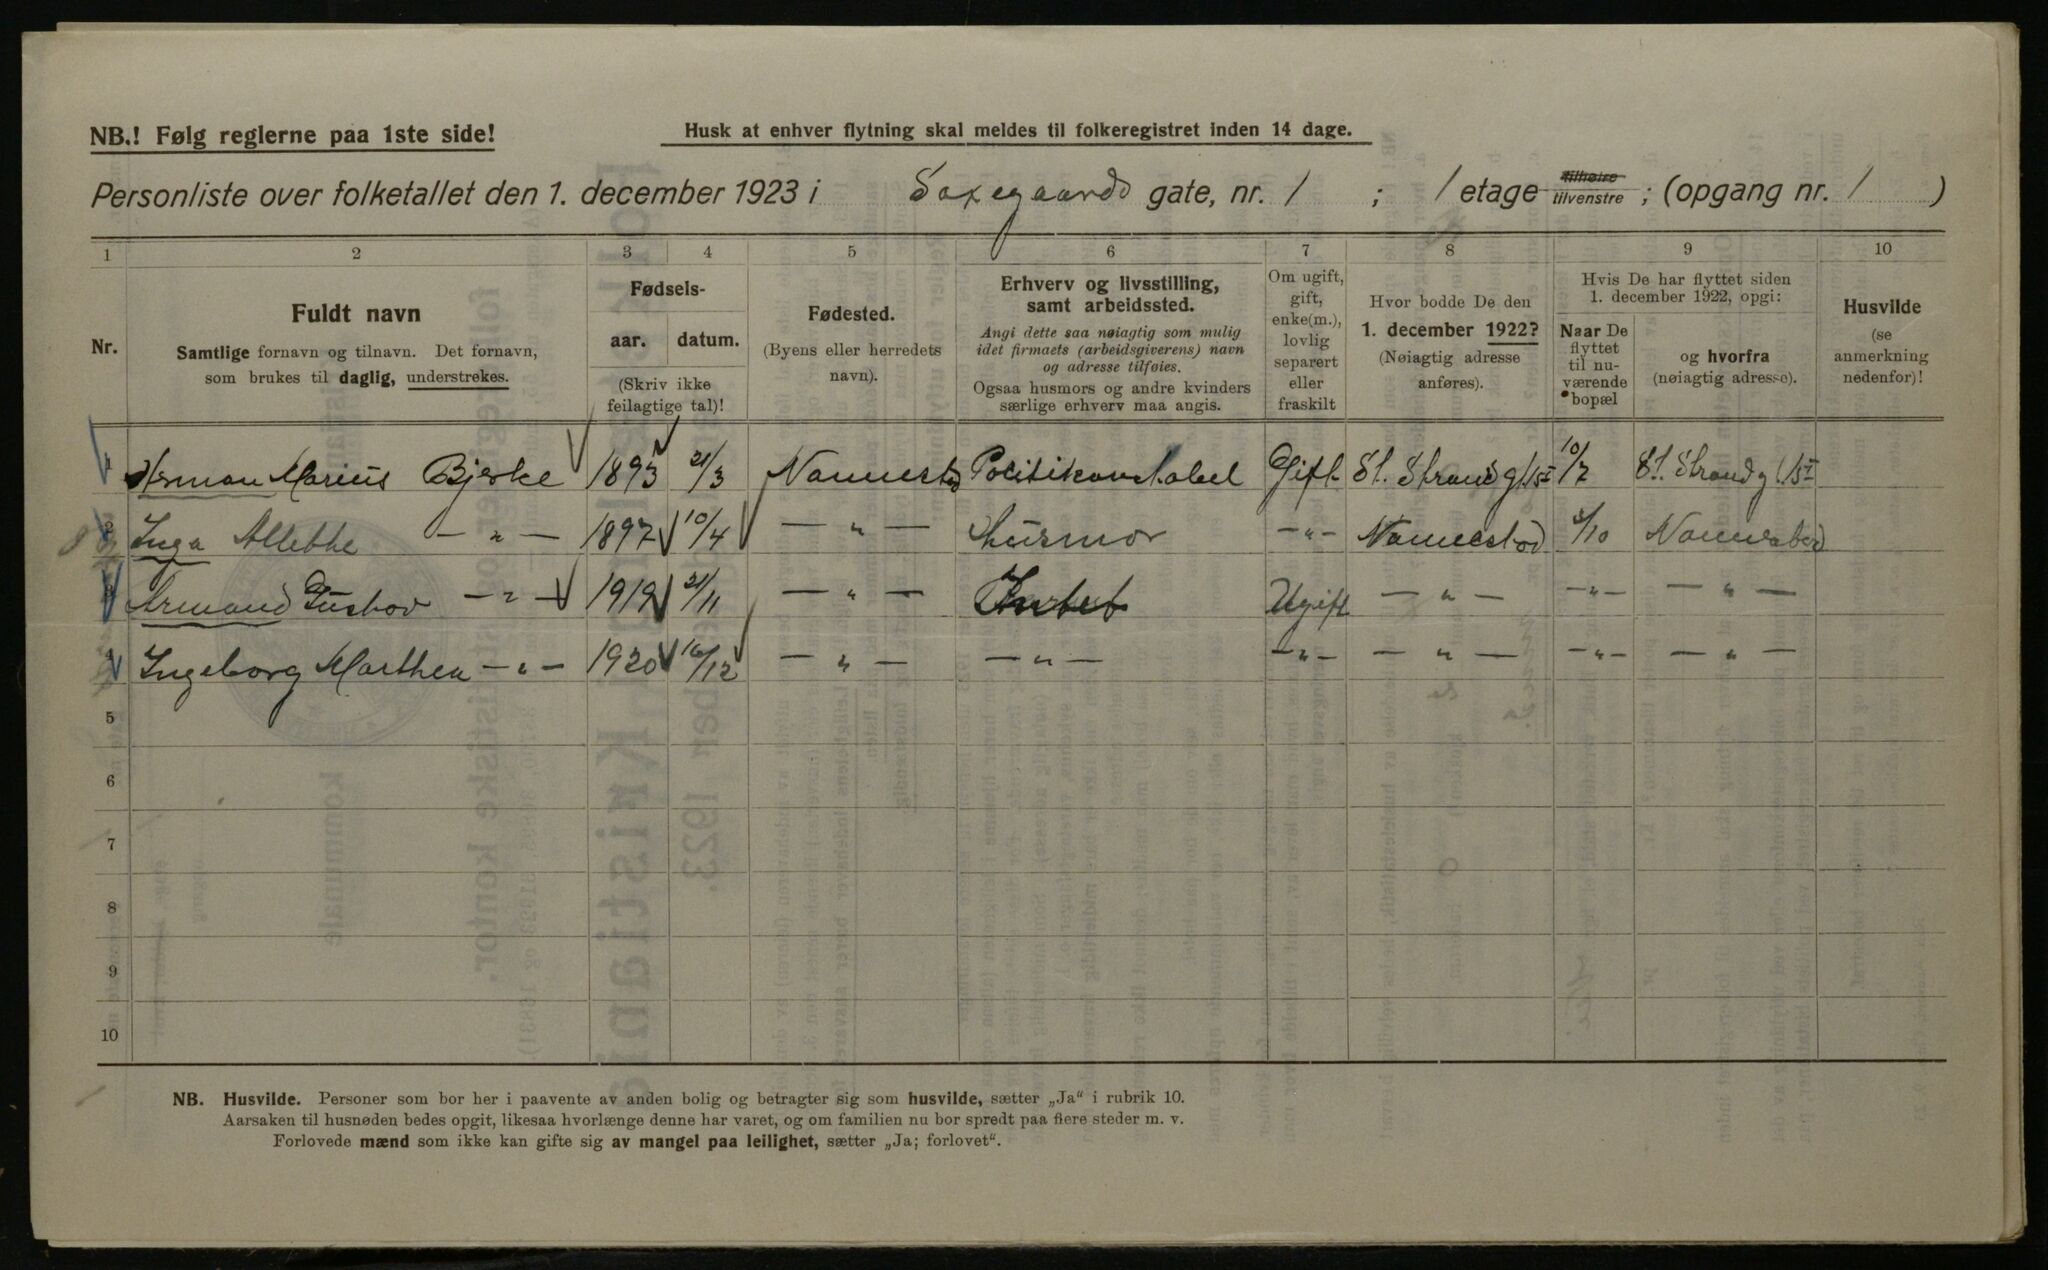 NB.! Følg reglerne paa 1ste side!
Husk at enhver flytning skal meldes til folkeregistret inden 14 dage.
Personliste over folketallet den 1. december 1923 i Saxegaards gate, nr. 1 ; 1 etage tilhøire tilvenstre ; (opgang nr. 1 )
1 2 3 4 5 6 7 8 9 10
Nr.
Fuldt navn
Samtlige fornavn og tilnavn. Det fornavn,
som brukes til daglig, understrekes.
Fødsels-
aar. datum.
(Skriv ikke
feilagtige tal)!
Fødested.
(Byens eller herredets
navn).
Erhverv og livsstilling,
samt arbeidssted.
Angi dette saa nøiagtig som mulig
idet firmaets (arbeidsgiverens) navn
og adresse tilføies.
Ogsaa husmors og andre kvinders
særlige erhverv maa angis.
Om ugift,
gift,
enke(m.),
lovlig
separert
eller
fraskilt
Hvor bodde De den
1. december 1922?
(Nøiagtig adresse
anføres).
Hvis De har flyttet siden
1. december 1922, opgi:
Naar De
flyttet
til nu-
værende
bopæl
og hvorfra
(nøiagtig adresse).
Husvilde
(se
anmerkning
nedenfor)!
1 Herman Marius Bjerke 1893 21/3 Nannestad Politikonstabel Gift St. Strandg 1 10/7 St. Strandg 1
2 Inga — „ — 1897 10/4 — „ — Husmor — „ — Nannestad /10 Nannestad
3 Armand Gustav — „ — 1919 21/11 — „ — Intet Ugift — „ — — „ — — „ —
4 Ingeborg Marthea — „ — 1920 16/12 — „ — — „ — — „ — — „ — — „ — — „ —
5
6
7
8
9
10
NB. Husvilde. Personer som bor her i paavente av anden bolig og betragter sig som husvilde, sætter „Ja“ i rubrik 10.
Aarsaken til husnøden bedes opgit, likesaa hvorlænge denne har varet, og om familien nu bor spredt paa flere steder m. v.
Forlovede mænd som ikke kan gifte sig av mangel paa leilighet, sætter „Ja; forlovet“.